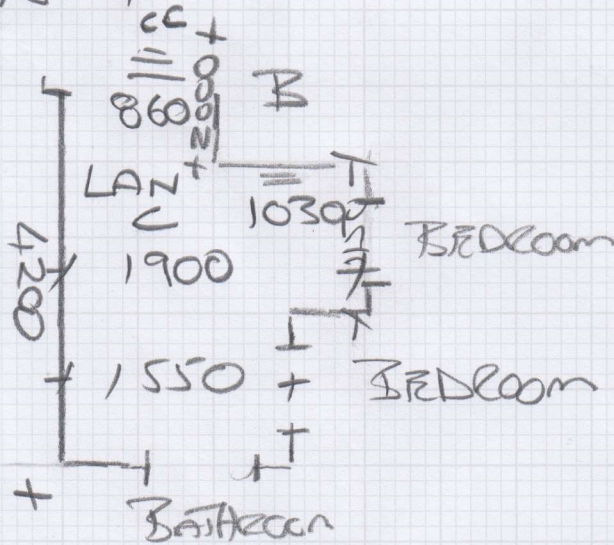 CC
860
B
2000
LAN
C
1030
BEDROOM
4200
1900
1550
BEDROOM
BATHROOM